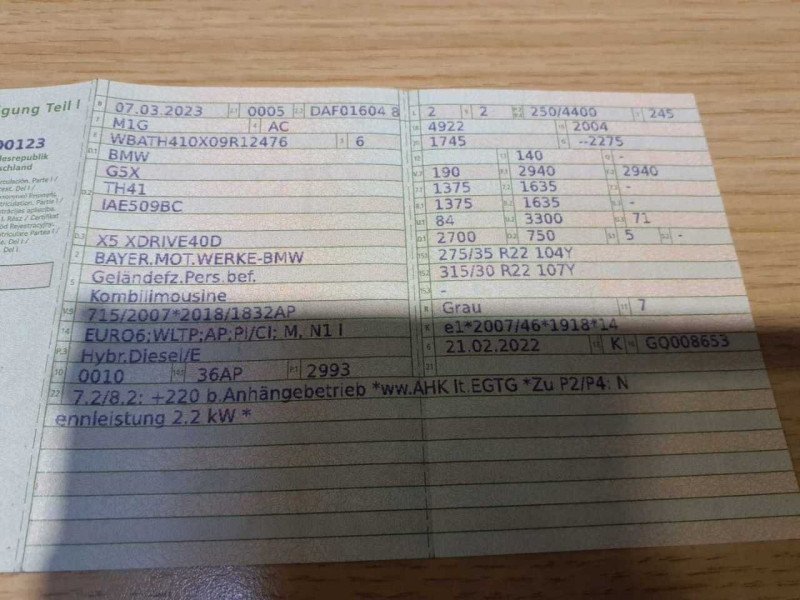 gung Teil I
00123
desrepublik
schland
B 07.03.2023 2.1 0005 2.2 DAF01604 8
J M1G 4 AC
E WBATH410X09R12476 3 6
D.1 BMW
D.2 G5X
TH41
IAE509BC
D.3 X5 XDRIVE40D
2 BAYER.MOT.WERKE-BMW
5 Geländefz.Pers.bef.
Kombilimousine
V.9 715/2007*2018/1832AP
14 EURO6;WLTP;AP;PI/CI; M, N1 I
P.3 Hybr.Diesel/E
10 0010 14.1 36AP P.1 2993
22 7.2/8.2: +220 b.Anhängebetrieb *ww.AHK lt.EGTG *Zu P2/P4: N
ennleistung 2.2 kW *
L 2 9 2 P.2 P.4 250/4400 T 245
18 4922 19 2004
20 1745 G --2275
12 - 13 140 Q -
V.7 190 F.1 2940 F.2 2940
7.1 1375 7.2 1635 7.3 -
8.1 1375 8.2 1635 8.3 -
U.1 84 U.2 3300 U.3 71
O.1 2700 O.2 750 S.1 5 S.2 -
15.1 275/35 R22 104Y
15.2 315/30 R22 107Y
15.3 -
R Grau 11 7
K e1*2007/46*1918*14
6 21.02.2022 17 K 16 GQ008653
21